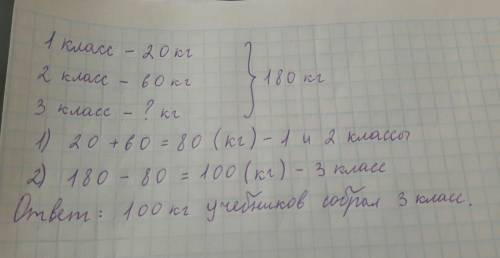 1 класс – 20 кг
2 класс – 60 кг
3 класс – ? кг
180 кг
1) 20 + 60 = 80 (кг) – 1 и 2 классы
2) 180 – 80 = 100 (кг) – 3 класс
Ответ: 100 кг учебников собрал 3 класс.